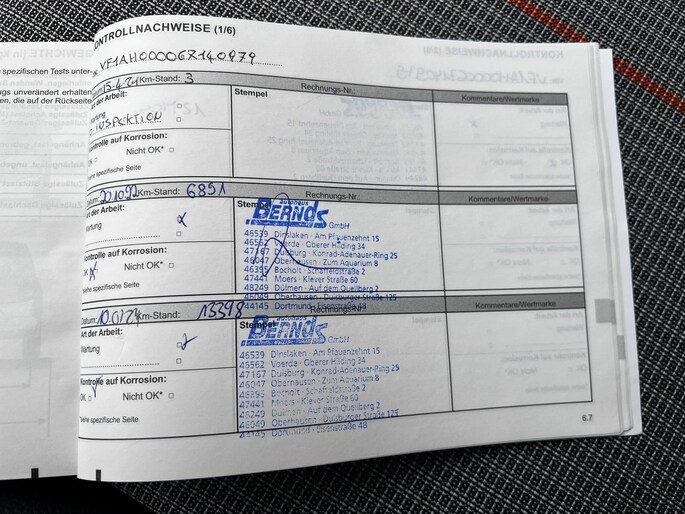 KONTROLLNACHWEISE (1/6)
VF1AH00006
Km-Stand: 3
Rechnungs-Nr.:
der Arbeit:
Stempel
Kommentare/Wertmarke
INSPEKTION
Kontrolle auf Korrosion:
Nicht OK*
siehe spezifische Seite
Km-Stand: 6851
Rechnungs-Nr.:
Art der Arbeit:
Stempel
Kommentare/Wertmarke
Wartung
autohaus
BERNDS
GmbH
46539 Dinslaken · Am Pfauenzehnt 15
46562 Voerde · Oberer Hilding 34
47167 Duisburg · Konrad-Adenauer-Ring 25
46047 Oberhausen · Zum Aquarium 8
46395 Bocholt · Schaffeldstraße 2
47441 Moers · Klever Straße 60
48249 Dülmen · Auf dem Quellberg 2
46049 Oberhausen · Duisburger Straße 125
44145 Dortmund · Eisenstraße 48
Kontrolle auf Korrosion:
OK
Nicht OK*
siehe spezifische Seite
Datum:
Km-Stand: 13398
Rechnungs-Nr.:
Art der Arbeit:
Stempel
Kommentare/Wertmarke
Wartung
BERNDS
GmbH
46539 Dinslaken · Am Pfauenzehnt 15
46562 Voerde · Oberer Hilding 34
47167 Duisburg · Konrad-Adenauer-Ring 25
46047 Oberhausen · Zum Aquarium 8
46395 Bocholt · Schaffeldstraße 2
47441 Moers · Klever Straße 60
48249 Dülmen · Auf dem Quellberg 2
46049 Oberhausen · Duisburger Straße 125
44145 Dortmund · Eisenstraße 48
Kontrolle auf Korrosion:
OK
Nicht OK*
siehe spezifische Seite
6.7